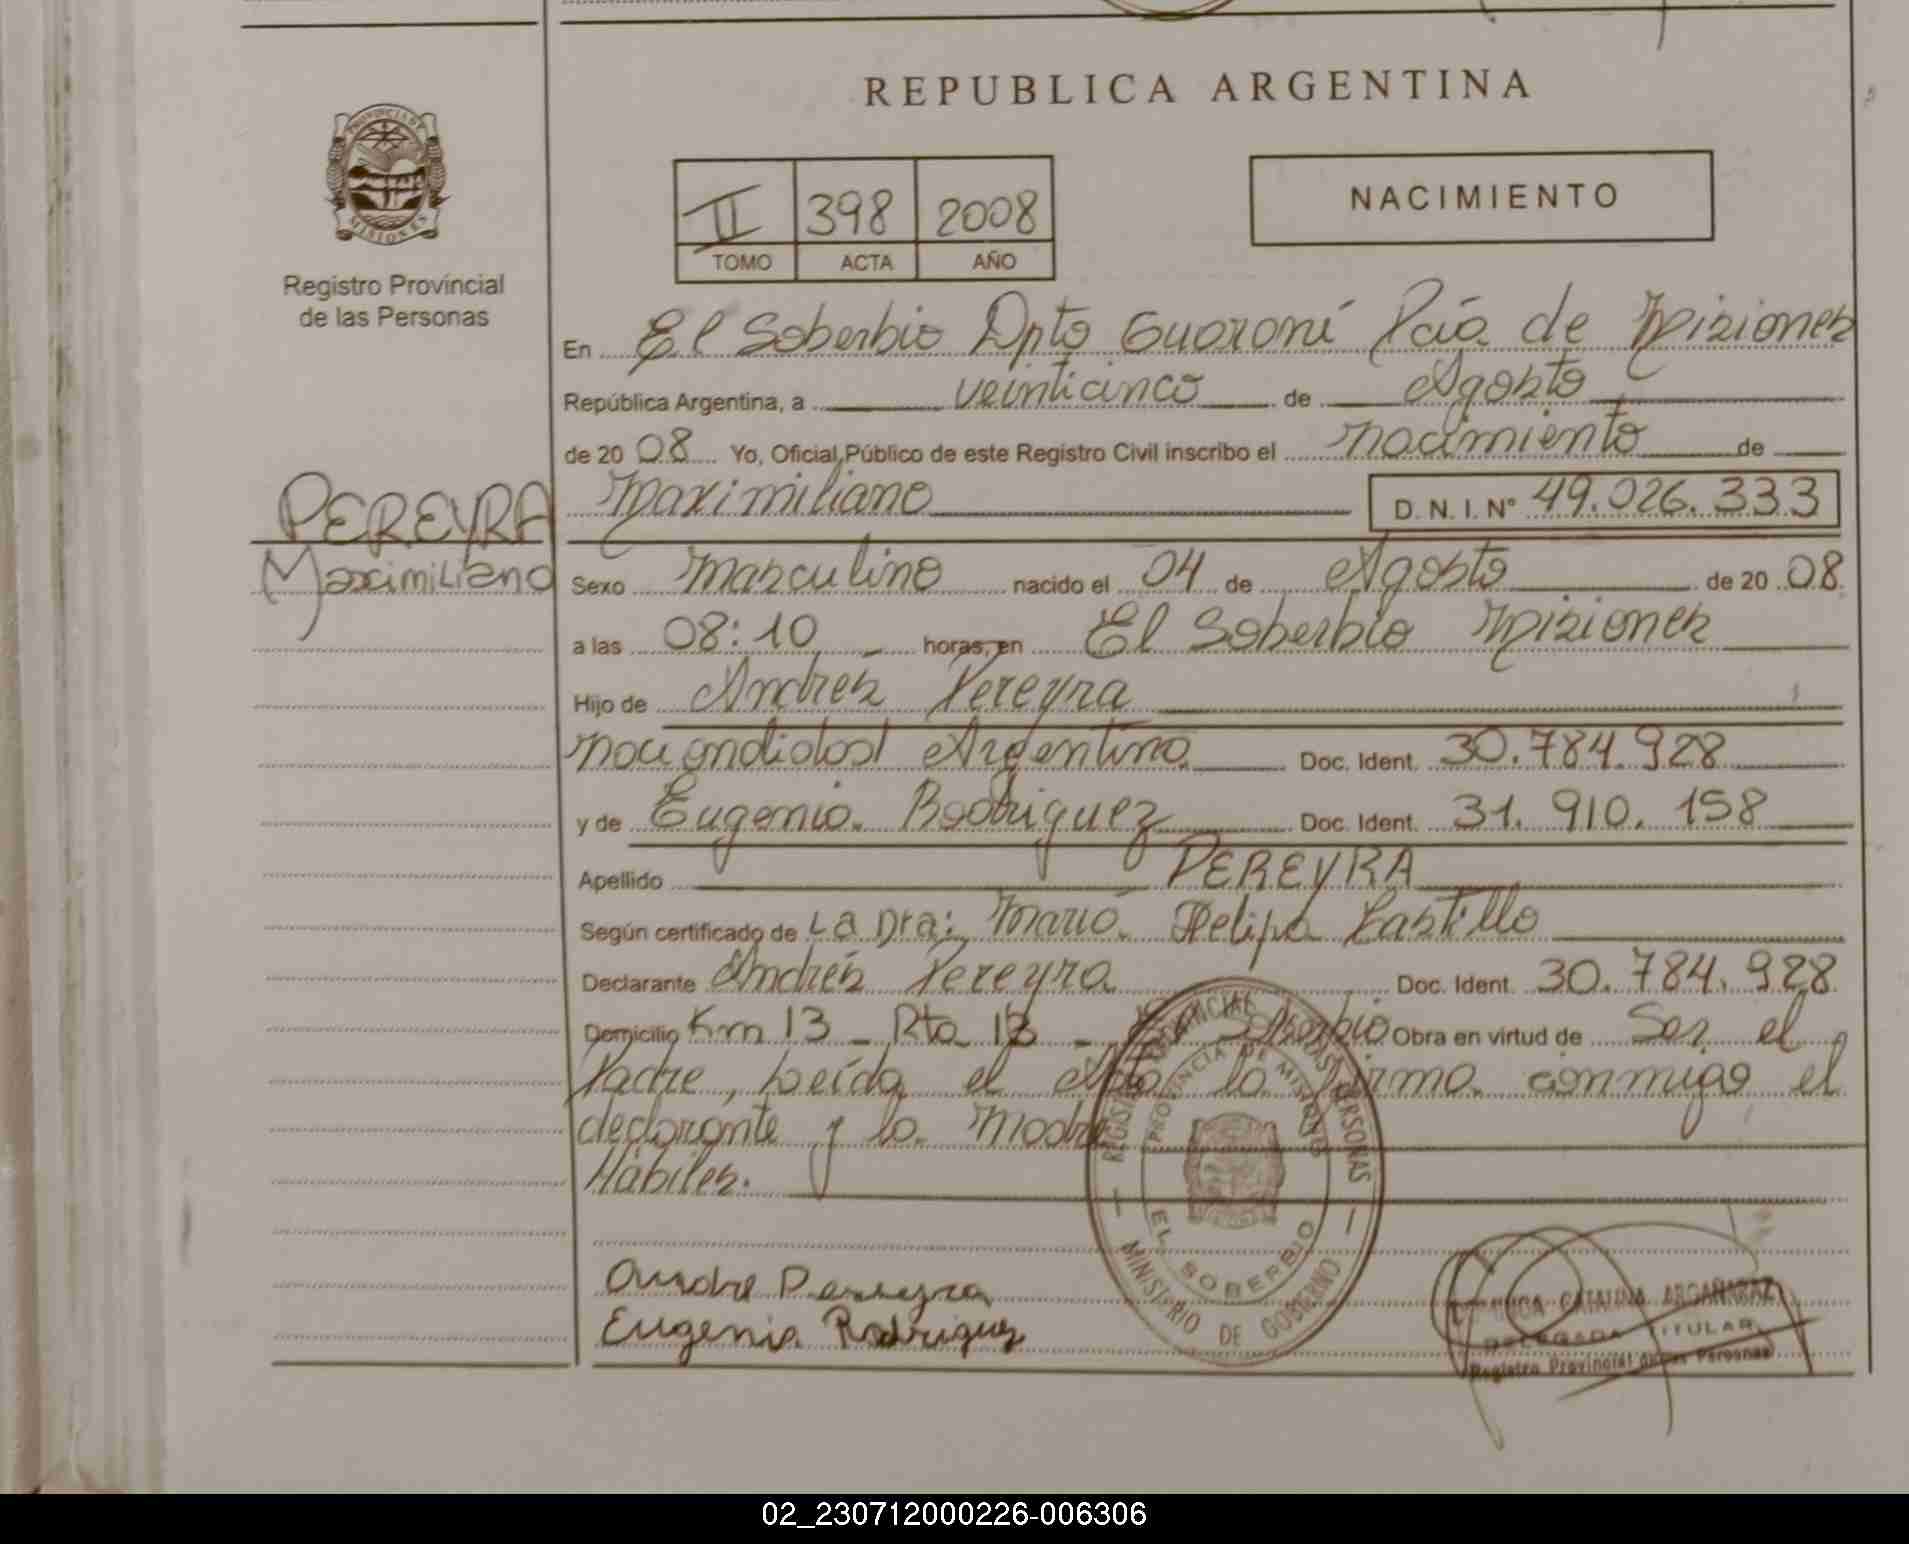 REPUBLICA ARGENTINA
PROVINCIA DE
MISIONES
Registro Provincial
de las Personas
II 398 2008
TOMO ACTA AÑO
NACIMIENTO
En El Soberbio Dpto Guaraní Pcia de Misiones
República Argentina, a veinticinco de Agosto
de 2008 Yo, Oficial Público de este Registro Civil inscribo el nacimiento de
PEREYRA
Maximiliano
Maximiliano D.N.I. Nº 49.026.333
Sexo masculino nacido el 04 de Agosto de 2008
a las 08:10 horas, en El Soberbio Misiones
Hijo de Andrés Pereyra
Nacionalidad Argentina Doc. Ident. 30.784.928
y de Eugenia Rodriguez Doc. Ident. 31.910.158
Apellido PEREYRA
Según certificado de La Dra: Maria Felipa Castillo
Declarante Andrés Pereyra Doc. Ident. 30.784.928
Domicilio Km 13 - Rta 13 - El Soberbio Obra en virtud de Ser el
Padre, Leída el Acta la firma conmigo el
declarante y la Madre
Hábiles.
REGISTRO PROVINCIAL DE LAS PERSONAS
PROVINCIA DE MISIONES
EL SOBERBIO
MINISTERIO DE GOBIERNO
Andre Pereyra
Eugenia Rodriguez
CATALINA ARGAÑARAZ
DELEGADA TITULAR
Registro Provincial de las Personas
02_230712000226-006306